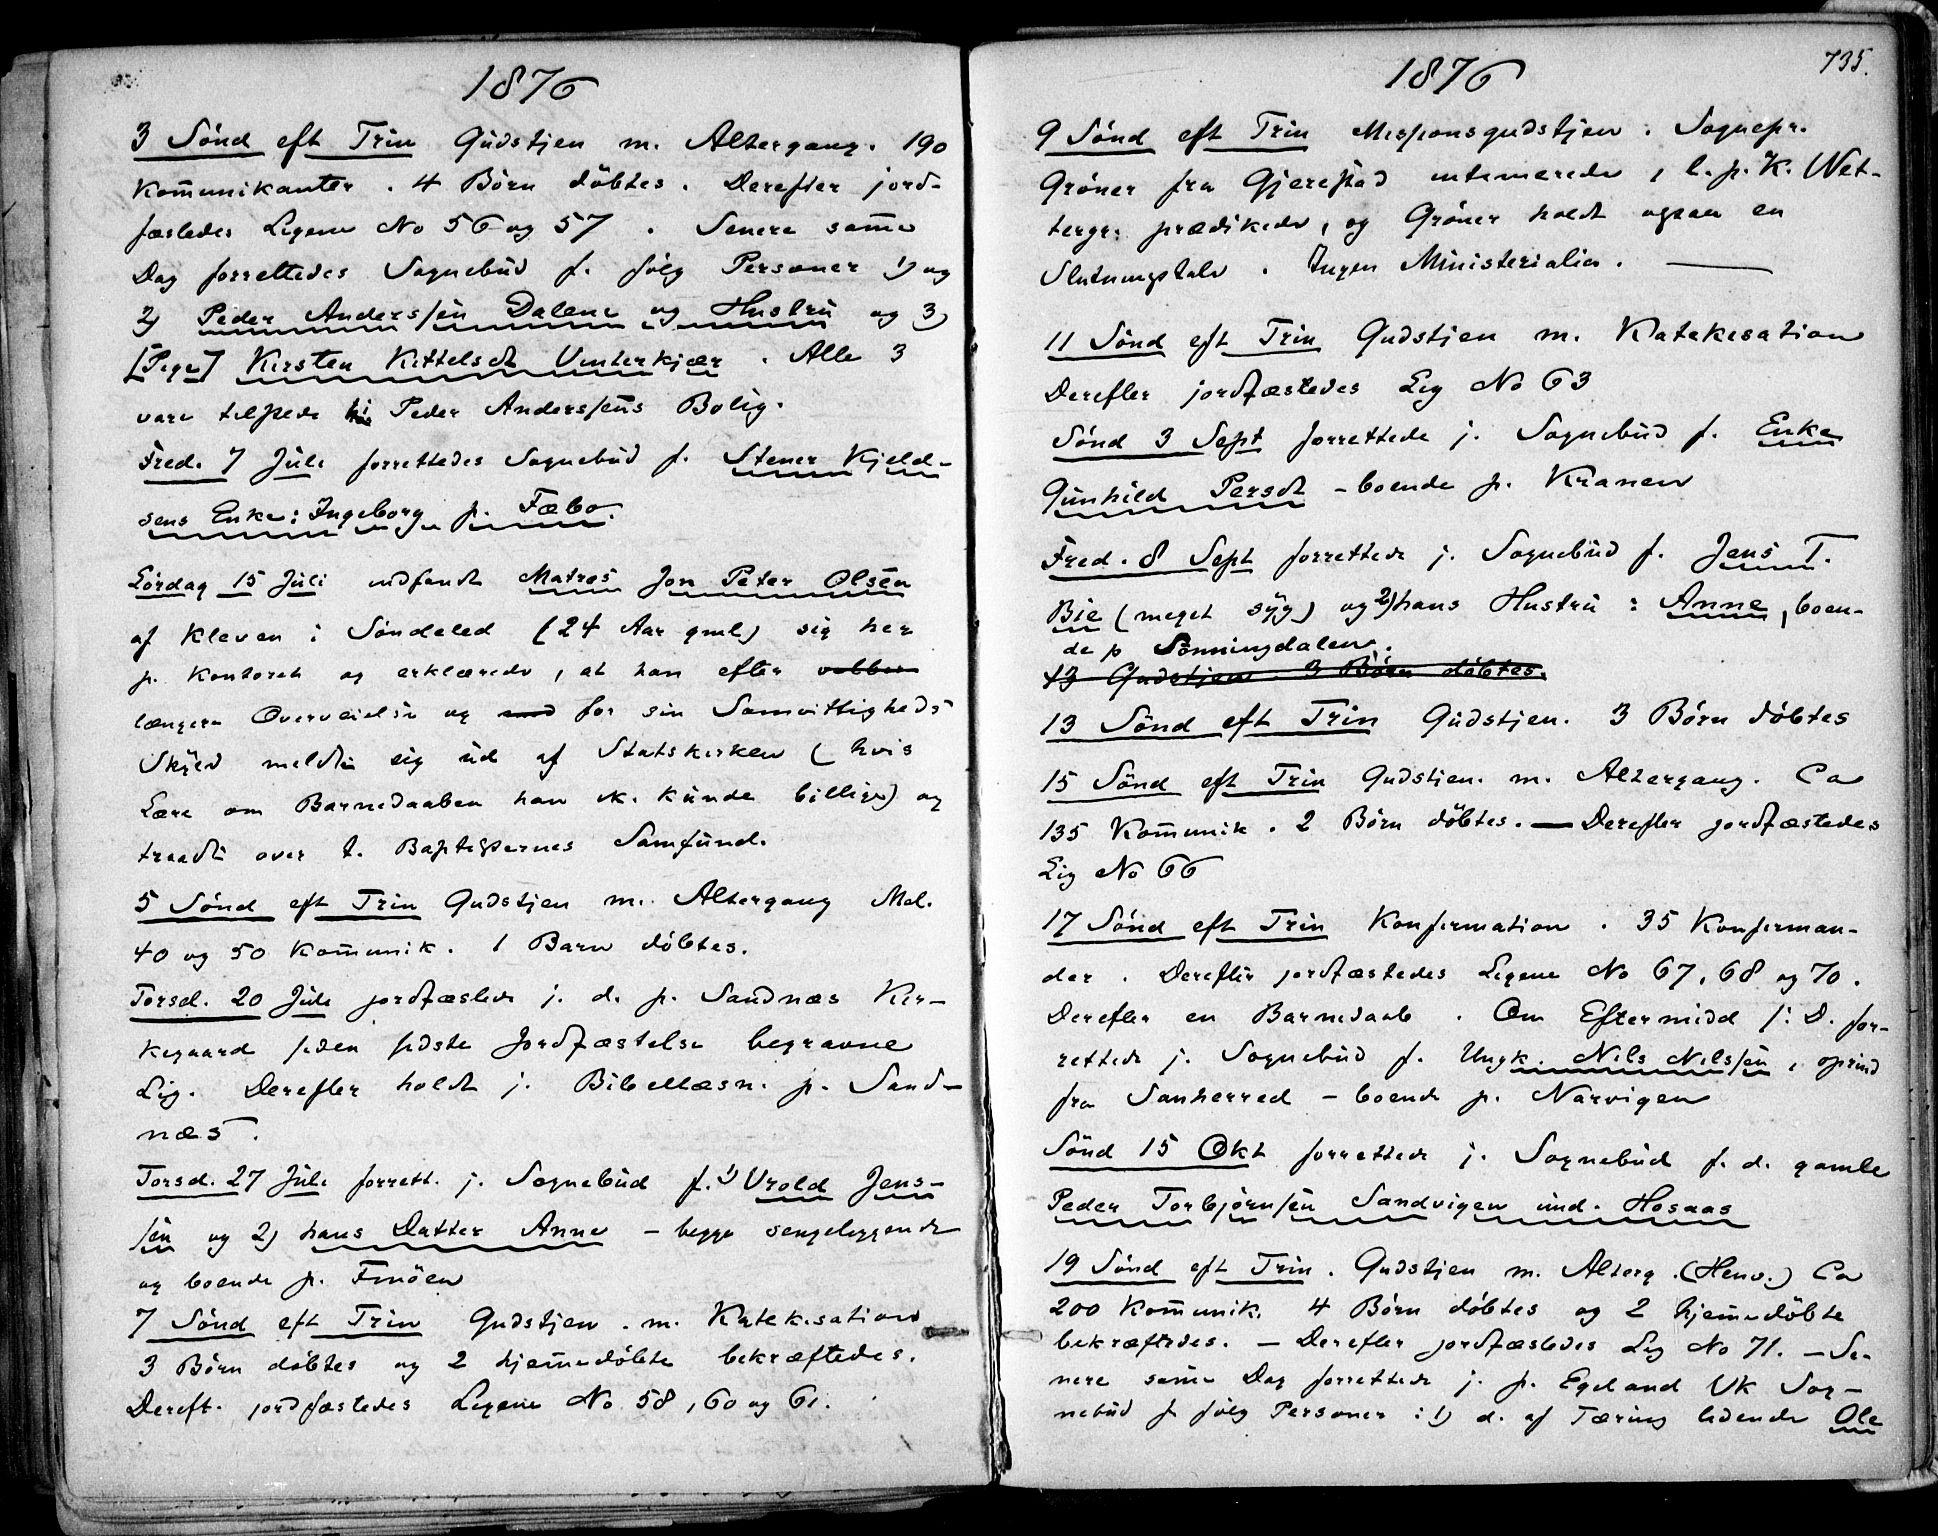 1876
3 Sönd eft Trin Gudstjen m. Altergang. 190
Kom̄unikanter. 4 Börn döbtes. Derefter jord-
fæstedes Ligene No 56 og 57. Senere sam̄e
Dag forrettedes Sognebud f. fölg Personer 1) og
2) Peder Anderssen Dalene og Hustru og 3)
[Pige] Kirsten Kittelsdt Vinterkjær. Alle 3
vare tilstede i Peder Anderssens Bolig.
Fred. 7 Juli forrettedes Sognebud f. Stener Kjeld-
sens Enke: Ingeborg p. Fæbo.
Lördag 15 Juli indfandt Matros Jon Peter Olsen
af Kleven i Söndeled (24 Aar gml) sig her
p. Kontoret og erklærede, at han efter
længere Overveielse og for sin Samvittigheds
Skyld meldte sig ud af Statskirken (hvis
Lære om Barnedaaben han ik. kunde billige) og
traadte over t. Baptisternes Samfund.
5 Sönd eft Trin Gudstjen m. Altergang Mel.
40 og 50 Kom̄unik. 1 Barn döbtes.
Torsd. 20 Juli jordfæstede j. d. p. Sandnæs Kir-
kegaard siden sidste Jordfæstelse begravne
Lig. Derefter holdt j. Bibellæsn. p. Sand-
næs.
Torsd. 27 Juli forrett. j. Sognebud f. 1) Vrold Jens-
sen og 2) hans Datter Anne – begge sengeliggende
og boende p. Finöen
7 Sönd eft Trin Gudstjen. m. Katekisation
3 Börn döbtes og 2 hjem̄edöbte bekræftedes.
Dereft. jordfæstedes Ligene No 58, 60 og 61.
1876
735.
9 Sönd eft Trin Missionsgudstjen. Sognepr.
Gröner fra Gjerestad intimerede, l. p. K. Wet-
tergr. prædikede, og Gröner holdt ogsaa en
Slutningstale. Ingen Ministerialia. —
11 Sönd eft Trin Gudstjen m. Katekisation
Derefter jordfæstedes Lig No 63
Sönd 3 Sept forrettede j. Sognebud f. Enke
Gunhild Persdt – boende p. Kranen
Fred. 8 Sept forrettede j. Sognebud f. Jens T.
Bie (meget syg) og 2) hans Hustru: Anne, boen-
de p Sönningdalen.
13 Gudstjen 3 Börn döbtes.
13 Sönd eft Trin Gudstjen. 3 Börn döbtes
15 Sönd eft Trin Gudstjen. m. Altergang. Ca
135 Kom̄unik. 2 Börn döbtes. — Derefter jordfæstedes
Lig No 66
17 Sönd eft Trin Konfirmation. 35 Konfirman-
der. Derefter jordfæstedes Ligene No 67, 68 og 70.
Derefter en Barnedaab. Om Eftermidd s: D. for-
rettede j. Sognebud f. Ungk. Nils Nilssen, oprind
fra Sanherred – boende p. Narvigen
Sönd 15 Okt forrettede j. Sognebud f. d. gamle
Peder Torbjörnsen Sandvigen ind. Hosaas
19 Sönd eft Trin. Gudstjen m. Alterg. (Henv.) Ca
200 Kom̄unik. 4 Börn döbtes og 2 hjem̄edöbte
bekræftedes. – Derefter jordfæstedes Lig No 71. – Se-
nere sam̄e Dag forrettede j. p. Egeland Vk Sog-
nebud f fölg Personer: 1) d. af Tæring lidende Ole